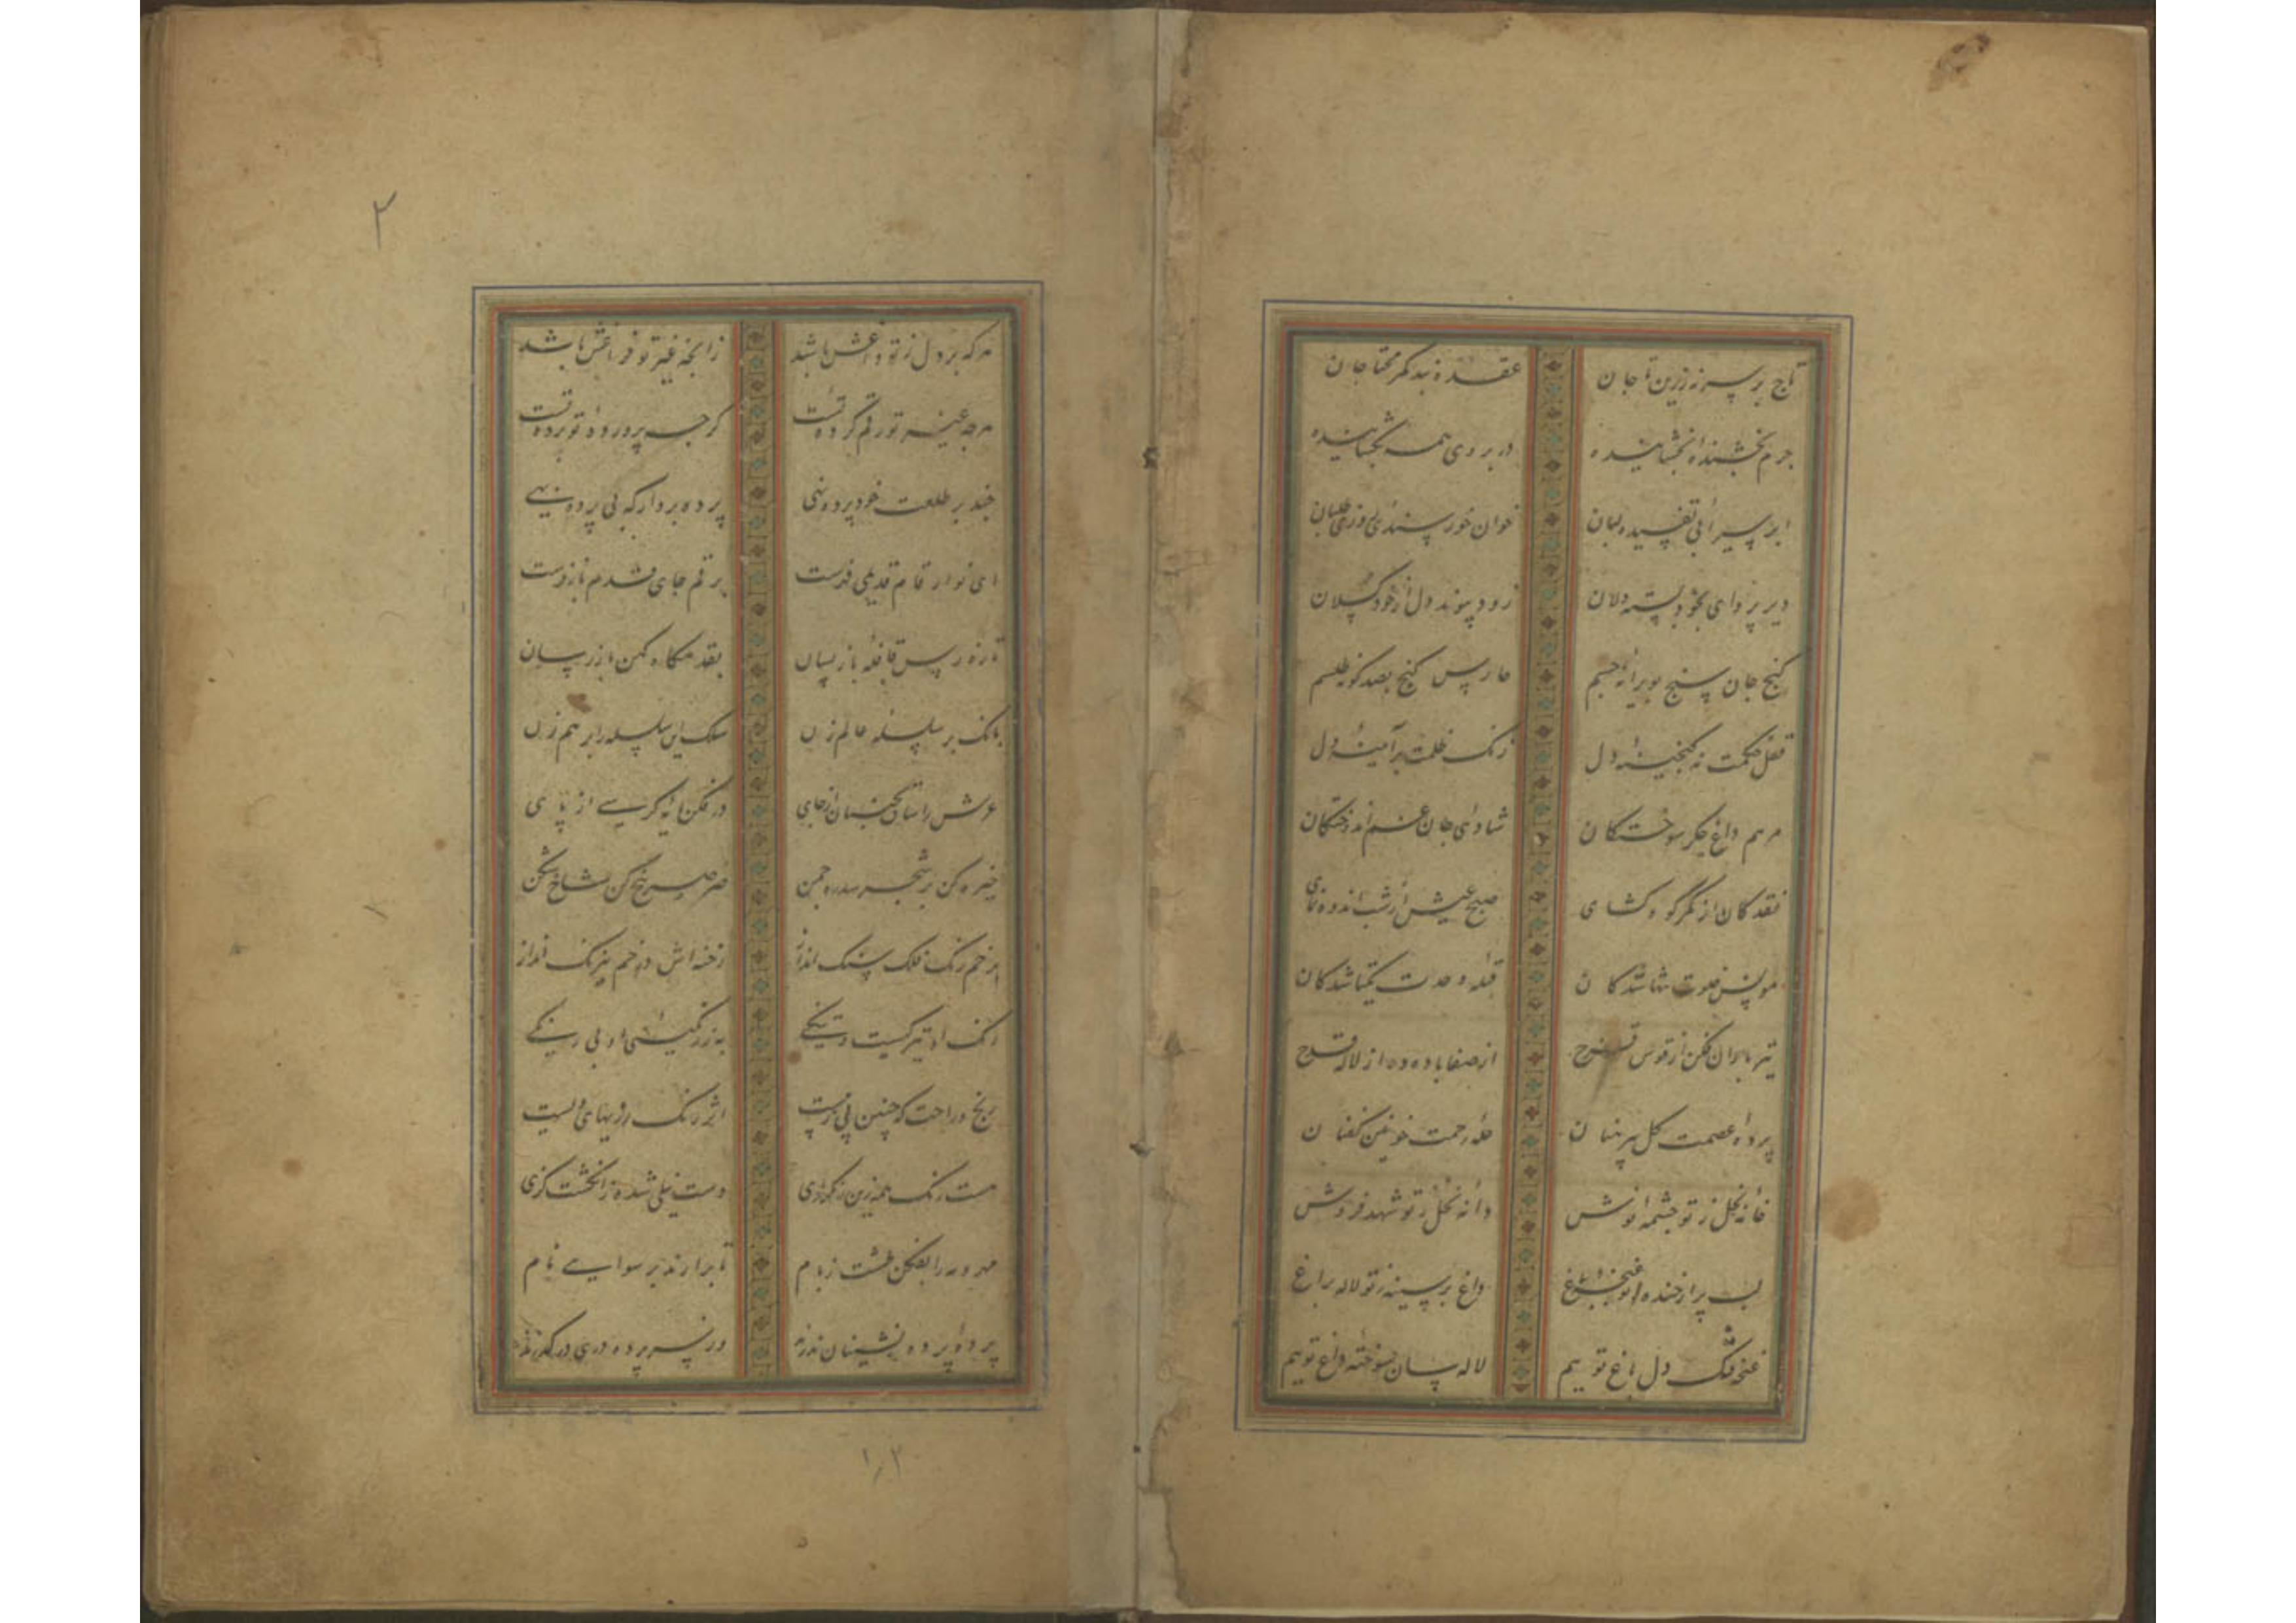 تاج بر سر نه زرین تاجان عقده بند کمر محتاجان
جرم بخشنده بخشاینده در بروی همه بگشاینده
ابر سیرابی تفسیده لبان خوان خورسندی روزی طلبان
دیر پروای بخود بسته دلان زود پیوند دل از خود گسلان
گنج جان سنج بویرانه جسم حارس گنج بصد گونه طلسم
قفل حکمت نه گنجینه دل زنگ ظلمت بر آئینه دل
مرهم داغ جگر سوختگان شادی جان غم اندوختگان
نقد کان از کمر کوه گشای صبح عیش از شب اندوه نمای
مونس خلوت تنها شدگان قبله وحدت یکتا شدگان
تیر باران فکن از قوس قزح از صفا باده ده از لاله قدح
پرده عصمت گل پیرهنان حله رحمت خونین کفنان
خانه نحل ز تو چشمه نوش دانه نخل ز تو شهد فروش
لب پر از خنده ز تو غنچه بباغ داغ بر سینه ز تو لاله براغ
غنچه سان تنگ دل باغ توییم لاله سان سوخته داغ توییم
هر که بر دل ز تو داغش باشد ز آنچه غیر تو فراغش باشد
هر چه غیر تو رقم کرده تست گر چه پرورده تو پرده تست
چند بر طلعت خود پرده نهی پرده بردار که بی پرده بهی
ای نوار قام قدیمی فرست بر قم جای قدم باز فرست
تازه رس قافله باز پسان بقدمگاه کهن باز رسان
بانگ بر سلسله عالم زن سلک این سلسله را بر هم زن
عرش را ساق بجنبان از جای در فکن پایه کرسی از پای
خیره کن بر شجر سدره چمن صرصر بیخ کن شاخ شکن
بر خم رنگ فلک سنگ انداز رخنه اش در خم نیرنگ انداز
رنگ او تیرگیست و تنگی به ز رنگینی او بی رنگی
رنج و راحت که چنین پی در پیست اثر رنگ رزیهای ویست
هست رنگ همه زین رنگرزی دست نیلی شده ز انگشت گزی
مهر و مه را بفکن طشت ز بام تا بر آرند برسوایی نام
پرده پرده نشینان ندرند ور سر پرده دری در گذرند
۲
۱٫۲